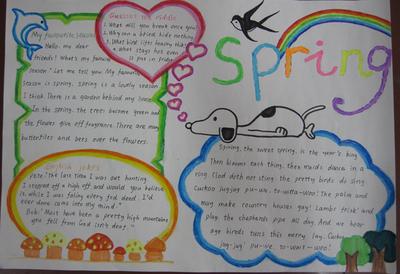 Guesses the riddle
1. What will you break once you
2. Why can a blind hide nothing
3. What bird lifts heavy
4. what stays hot even
it put in fridge
My favourite season
Hello, my dear
friends! What's my favourite
season? Let me tell you My favourite
season is spring. spring is a lovely season
I think. There is a garden behind my
In the spring, the trees become green and
the flower give off fragrance. There are many
butterflies and bees over the flowers.
Spring
English jokes
Pete: the last time I was out hunting
I stepped off a high cliff and, would you believe
it while I was falling every fool deed I'd
ever done came into my mind."
Bob: Must have been a pretty high mountain
you fell from. God isn't deaf."
Spring, the sweet spring, is the year's king.
Then blooms each thing, then maids dance in a
ring. Cold doth not sting, the pretty birds do sing
Cuckoo jug-jug pu-we, to-witta-woo! The palm and
may make country houses gay! Lambs frisk and
play, the shepherds pipe all day. And we hear
age birds tunes this merry lay. Cuckoo
jug-jug! pu-we to-wait-woo!